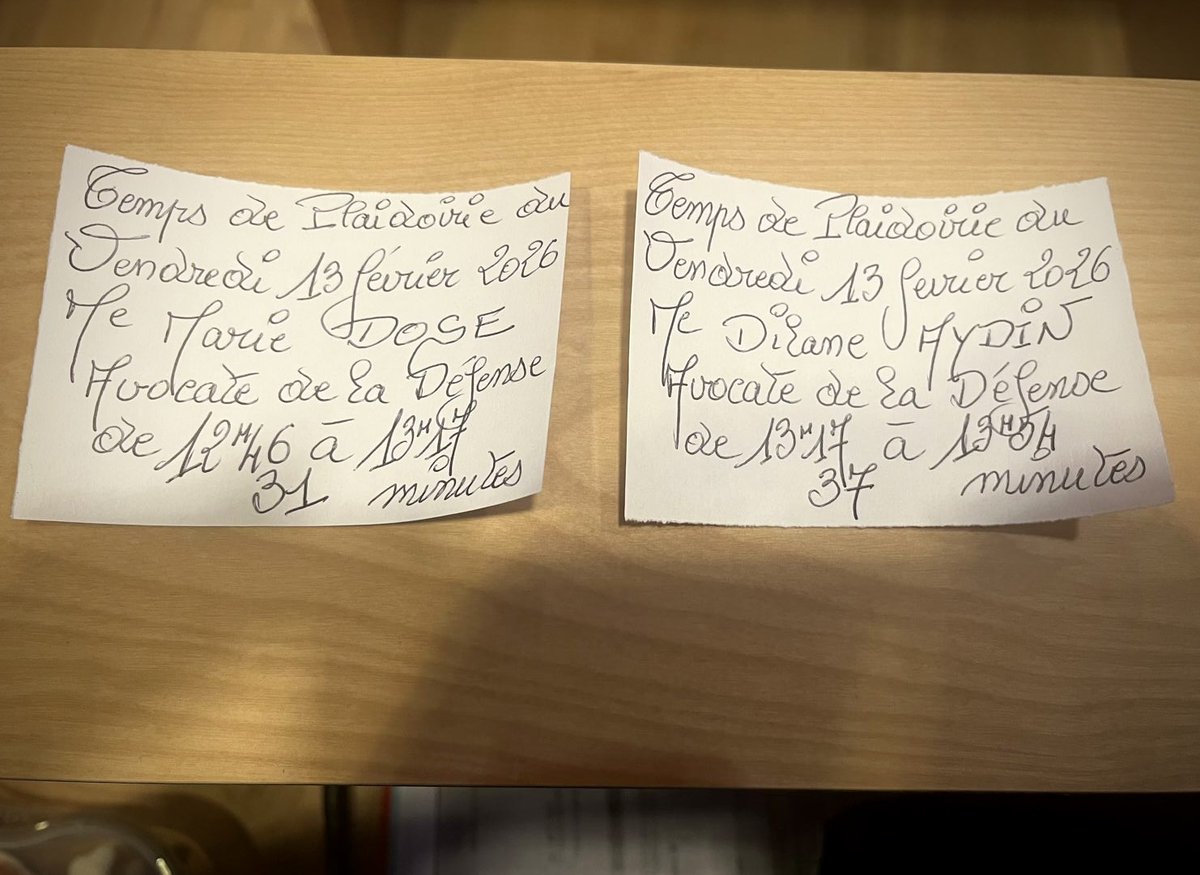 Temps de Plaidoirie du
Vendredi 13 février 2026
Me Marie DOSE
Avocate de la Défense
de 12H46 à 13H17
31 minutes
Temps de Plaidoirie du
Vendredi 13 fevrier 2026
Me Dilane AYDIN
Avocate de la Défense
de 13H17 à 13H54
37 minutes